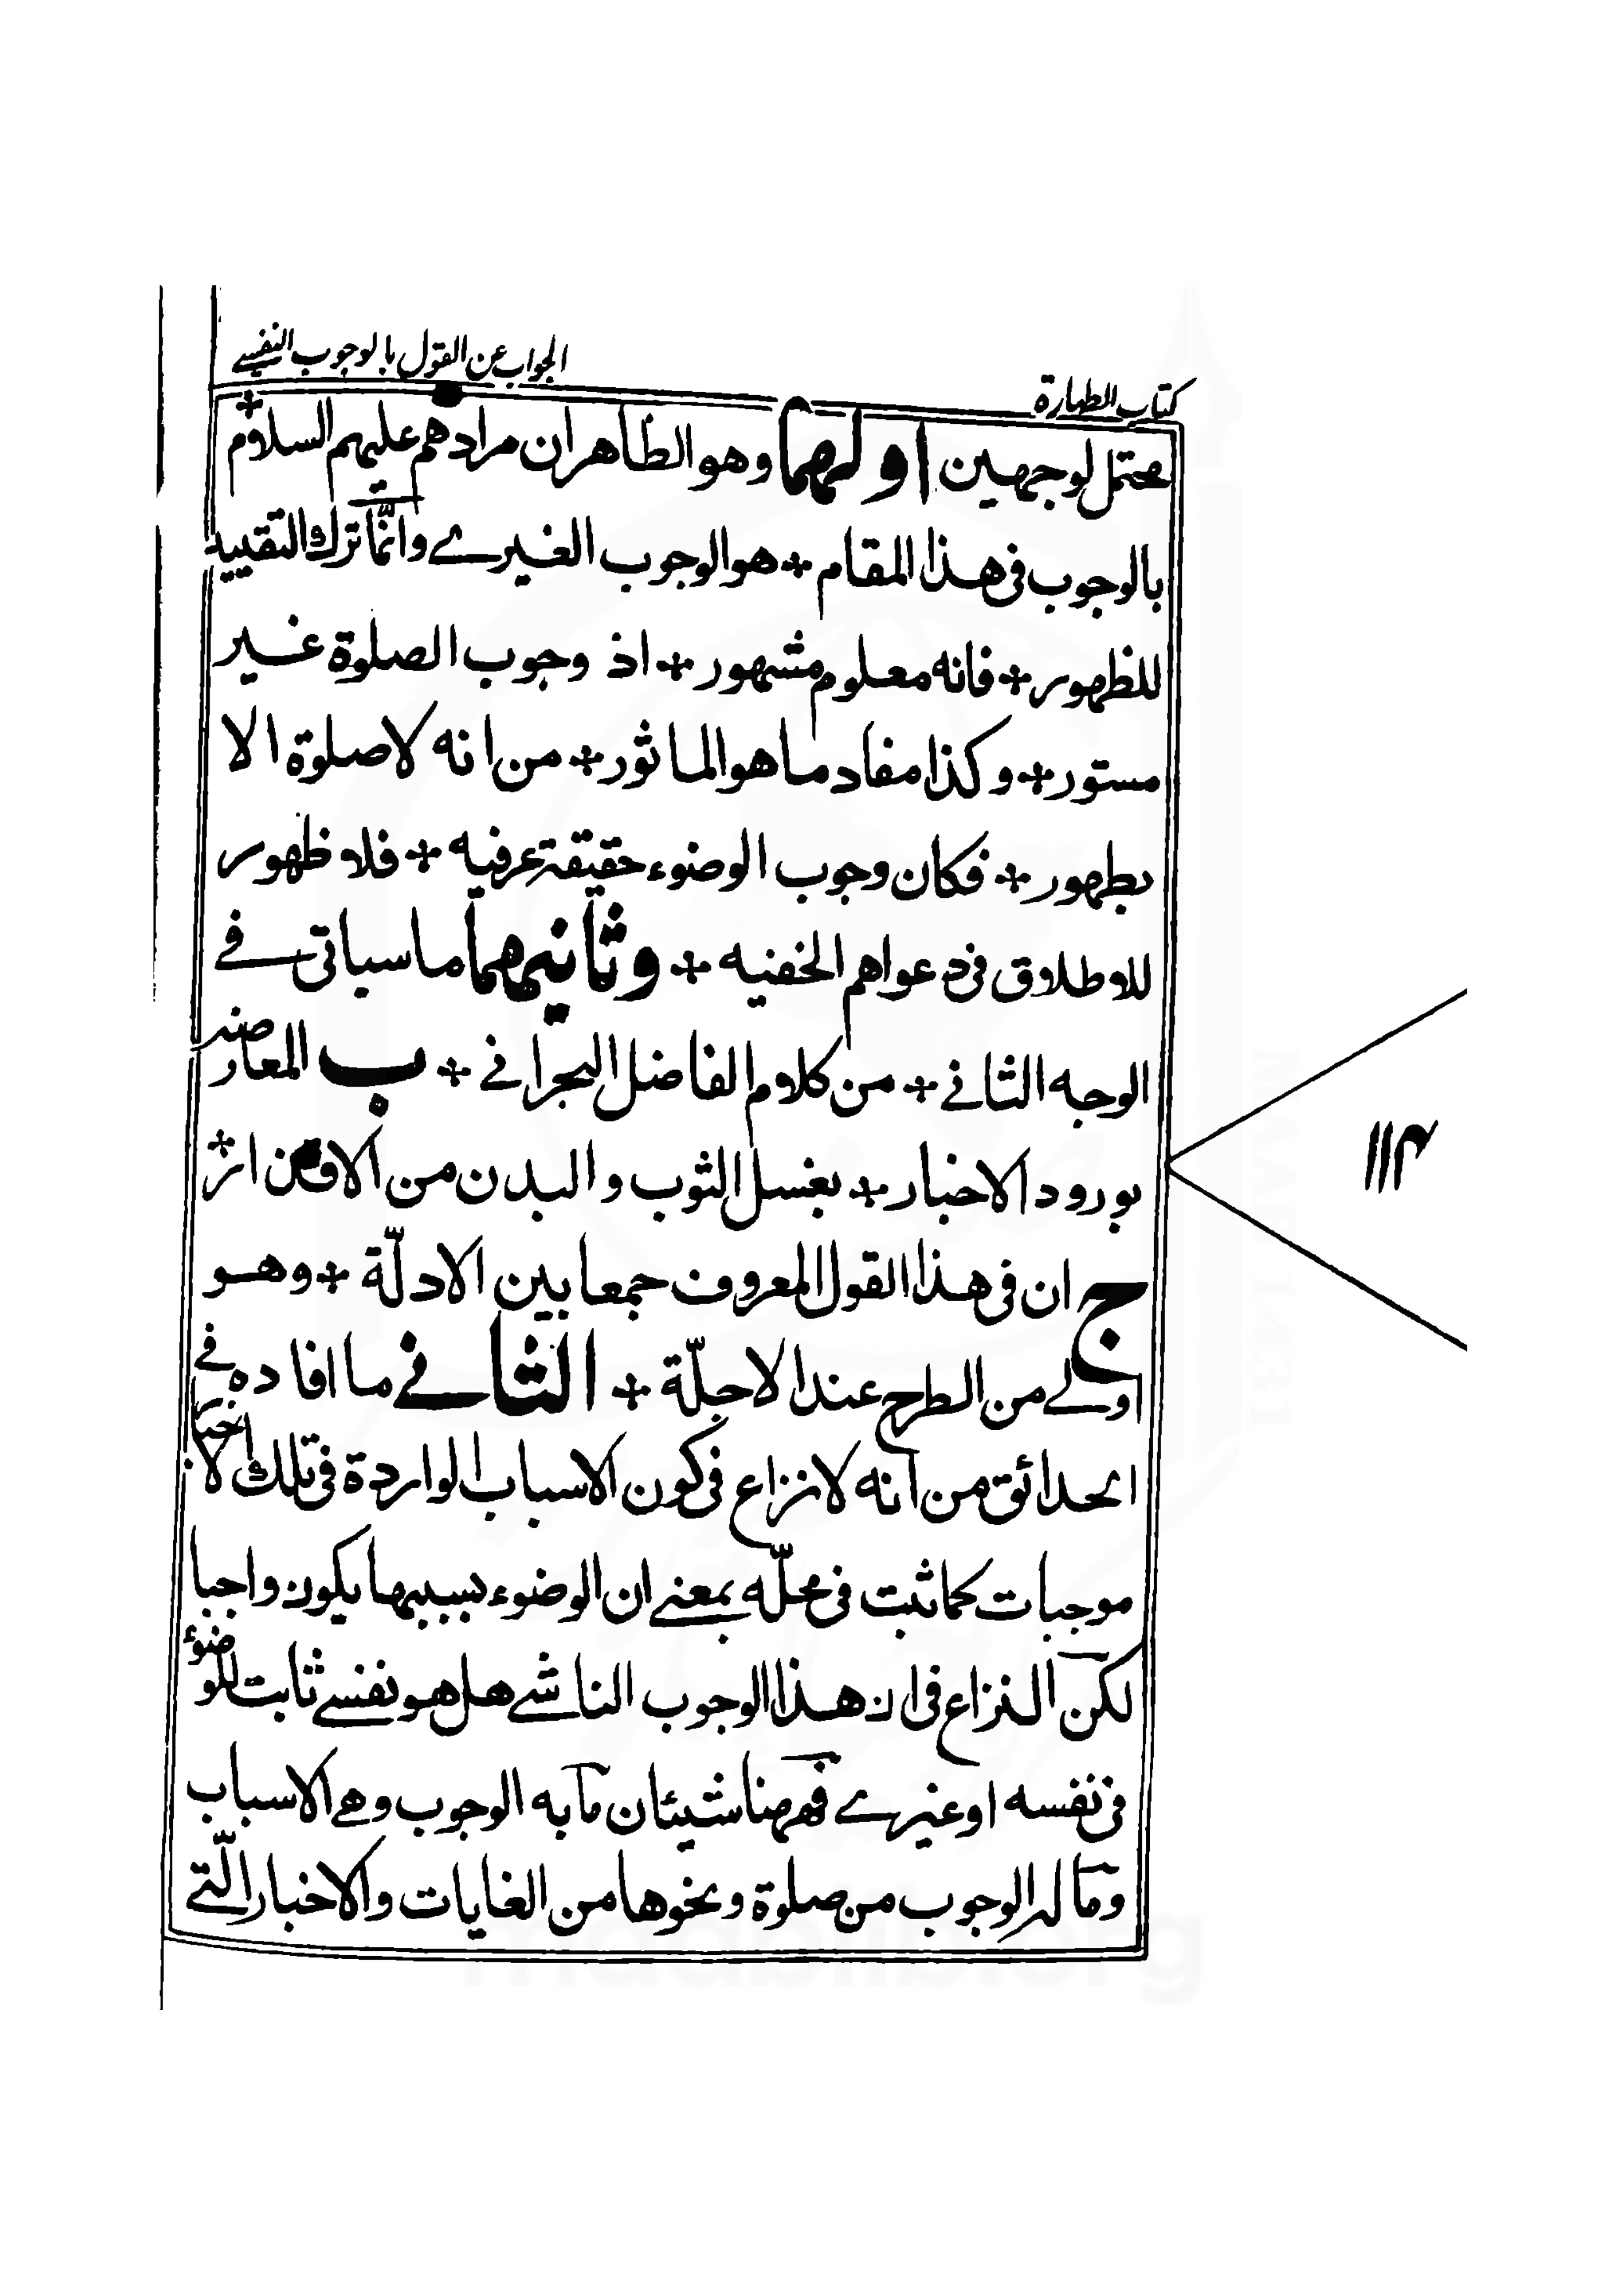 كتاب الطهارة
الجواب عن القول بالوجوب النفسے
محتمل لوجهين اولهما وهو الظاهر ان مرادهم عليهم السلام +
بالوجوب فى هذا المقام + هو الوجوب الغيرے وانّما ترك التقييد
للظهور + فانه معلوم مشهور + اذ وجوب الصلوة غير
مستور + وكذا مفاد ما هو الماثور + من انه لا صلوة الا
بطهور + فكان وجوب الوضوء حقيقة عرفيه + فلا ظهور
للاطلاق فى دعواهم الخفيه + وثانيهما ما سياتى فے
الوجه الثانے + من كلام الفاضل البحرانے + ب المعارضه
بورود الاخبار + بغسل الثوب والبدن من الاقذار +
ج ان فى هذا القول المعروف جمعا بين الادلّة + وهو
اولے من الطرح عند الاجلّة + الثانے ما افاده فے
الحدائق من انه لا نزاع فى كون الاسباب الواردة فى تلك الاخبار
موجبات كما ثبت فى محلّه بمعنے ان الوضوء بسببها يكون واجبا
لكن النزاع فى ان هذا الوجوب الناشے هل هو نفسے ثابت للوضوء
فى نفسه او غيرے فههنا شيئان ما به الوجوب وهے الاسباب
وما له الوجوب من صلوة ونحوها من الغايات والاخبار الّتے
۱۱۴